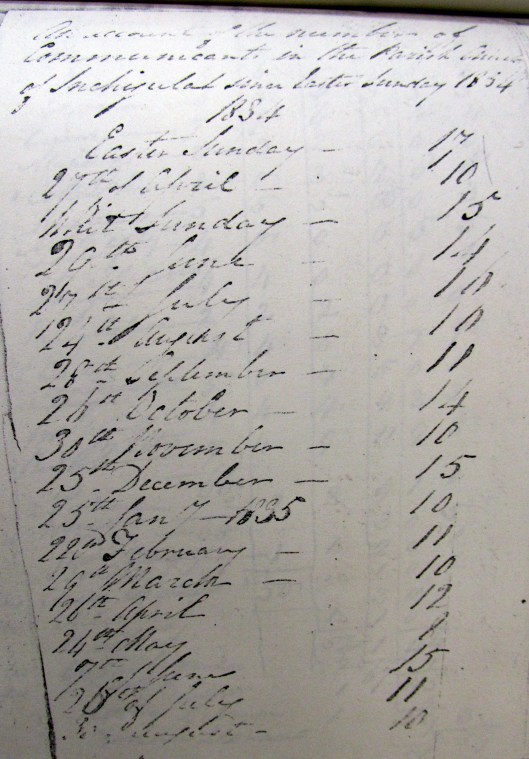 An account of the number of
Communicants in the Parish
of Inchigulat since Easter Sunday 1834
1834
Easter Sunday — 17
27th of April — 10
Whit Sunday — 15
th June — 14
27th July — 10
24th August — 10
28th September — 11
26th October — 14
30th November — 10
25th December — 15
25th Jany — 1835 10
22nd February — 11
29th March — 10
26th April 12
24th May
7th June 15
26th of July 11
30 August — 10